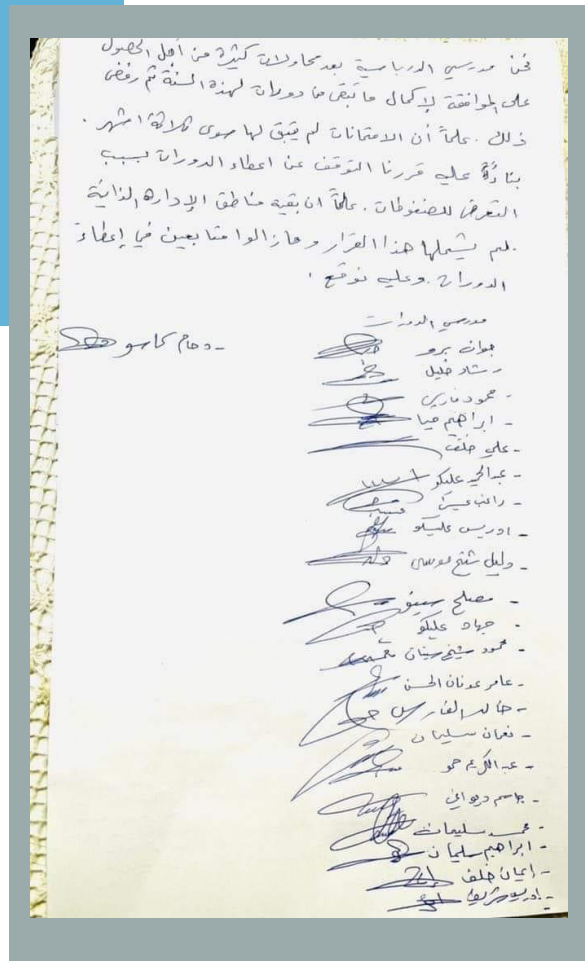 نحن مدرسي الدرباسية بعد محاولات كثيرة من أجل الحصول
على الموافقة لإكمال ما تبقى من دورات لهذه السنة تم رفض
ذلك . علماً أن الامتحانات لم يتبق لها سوى ثلاثة اشهر .
بناءً عليه قررنا التوقف عن اعطاء الدورات بسبب
التعرض للضغوطات . علماً ان بقية مناطق الإدارة الذاتية
لم يشملها هذا القرار ومازالوا متابعين في إعطاء
الدورات . وعليه نوقع .
مدرسي الدورات
جوان برو
- رشاد خليل
- محمود فارس
- ابراهيم
- علي خلف
- عبدالحي عليكو
- راغب
- ادريس عليكو
- دليل شيخ موسى
- مصلح
- جهاد عليكو
- محمود شيخ سينان
- عامر عدنان الحسن
- خالد الفارس
- نعمان سليمان
- عبدالكريم حمو
- جاسم
- محمد سليمان
- ابراهيم سليمان
- ايمان خلف
- شريف
- دحام كاسو